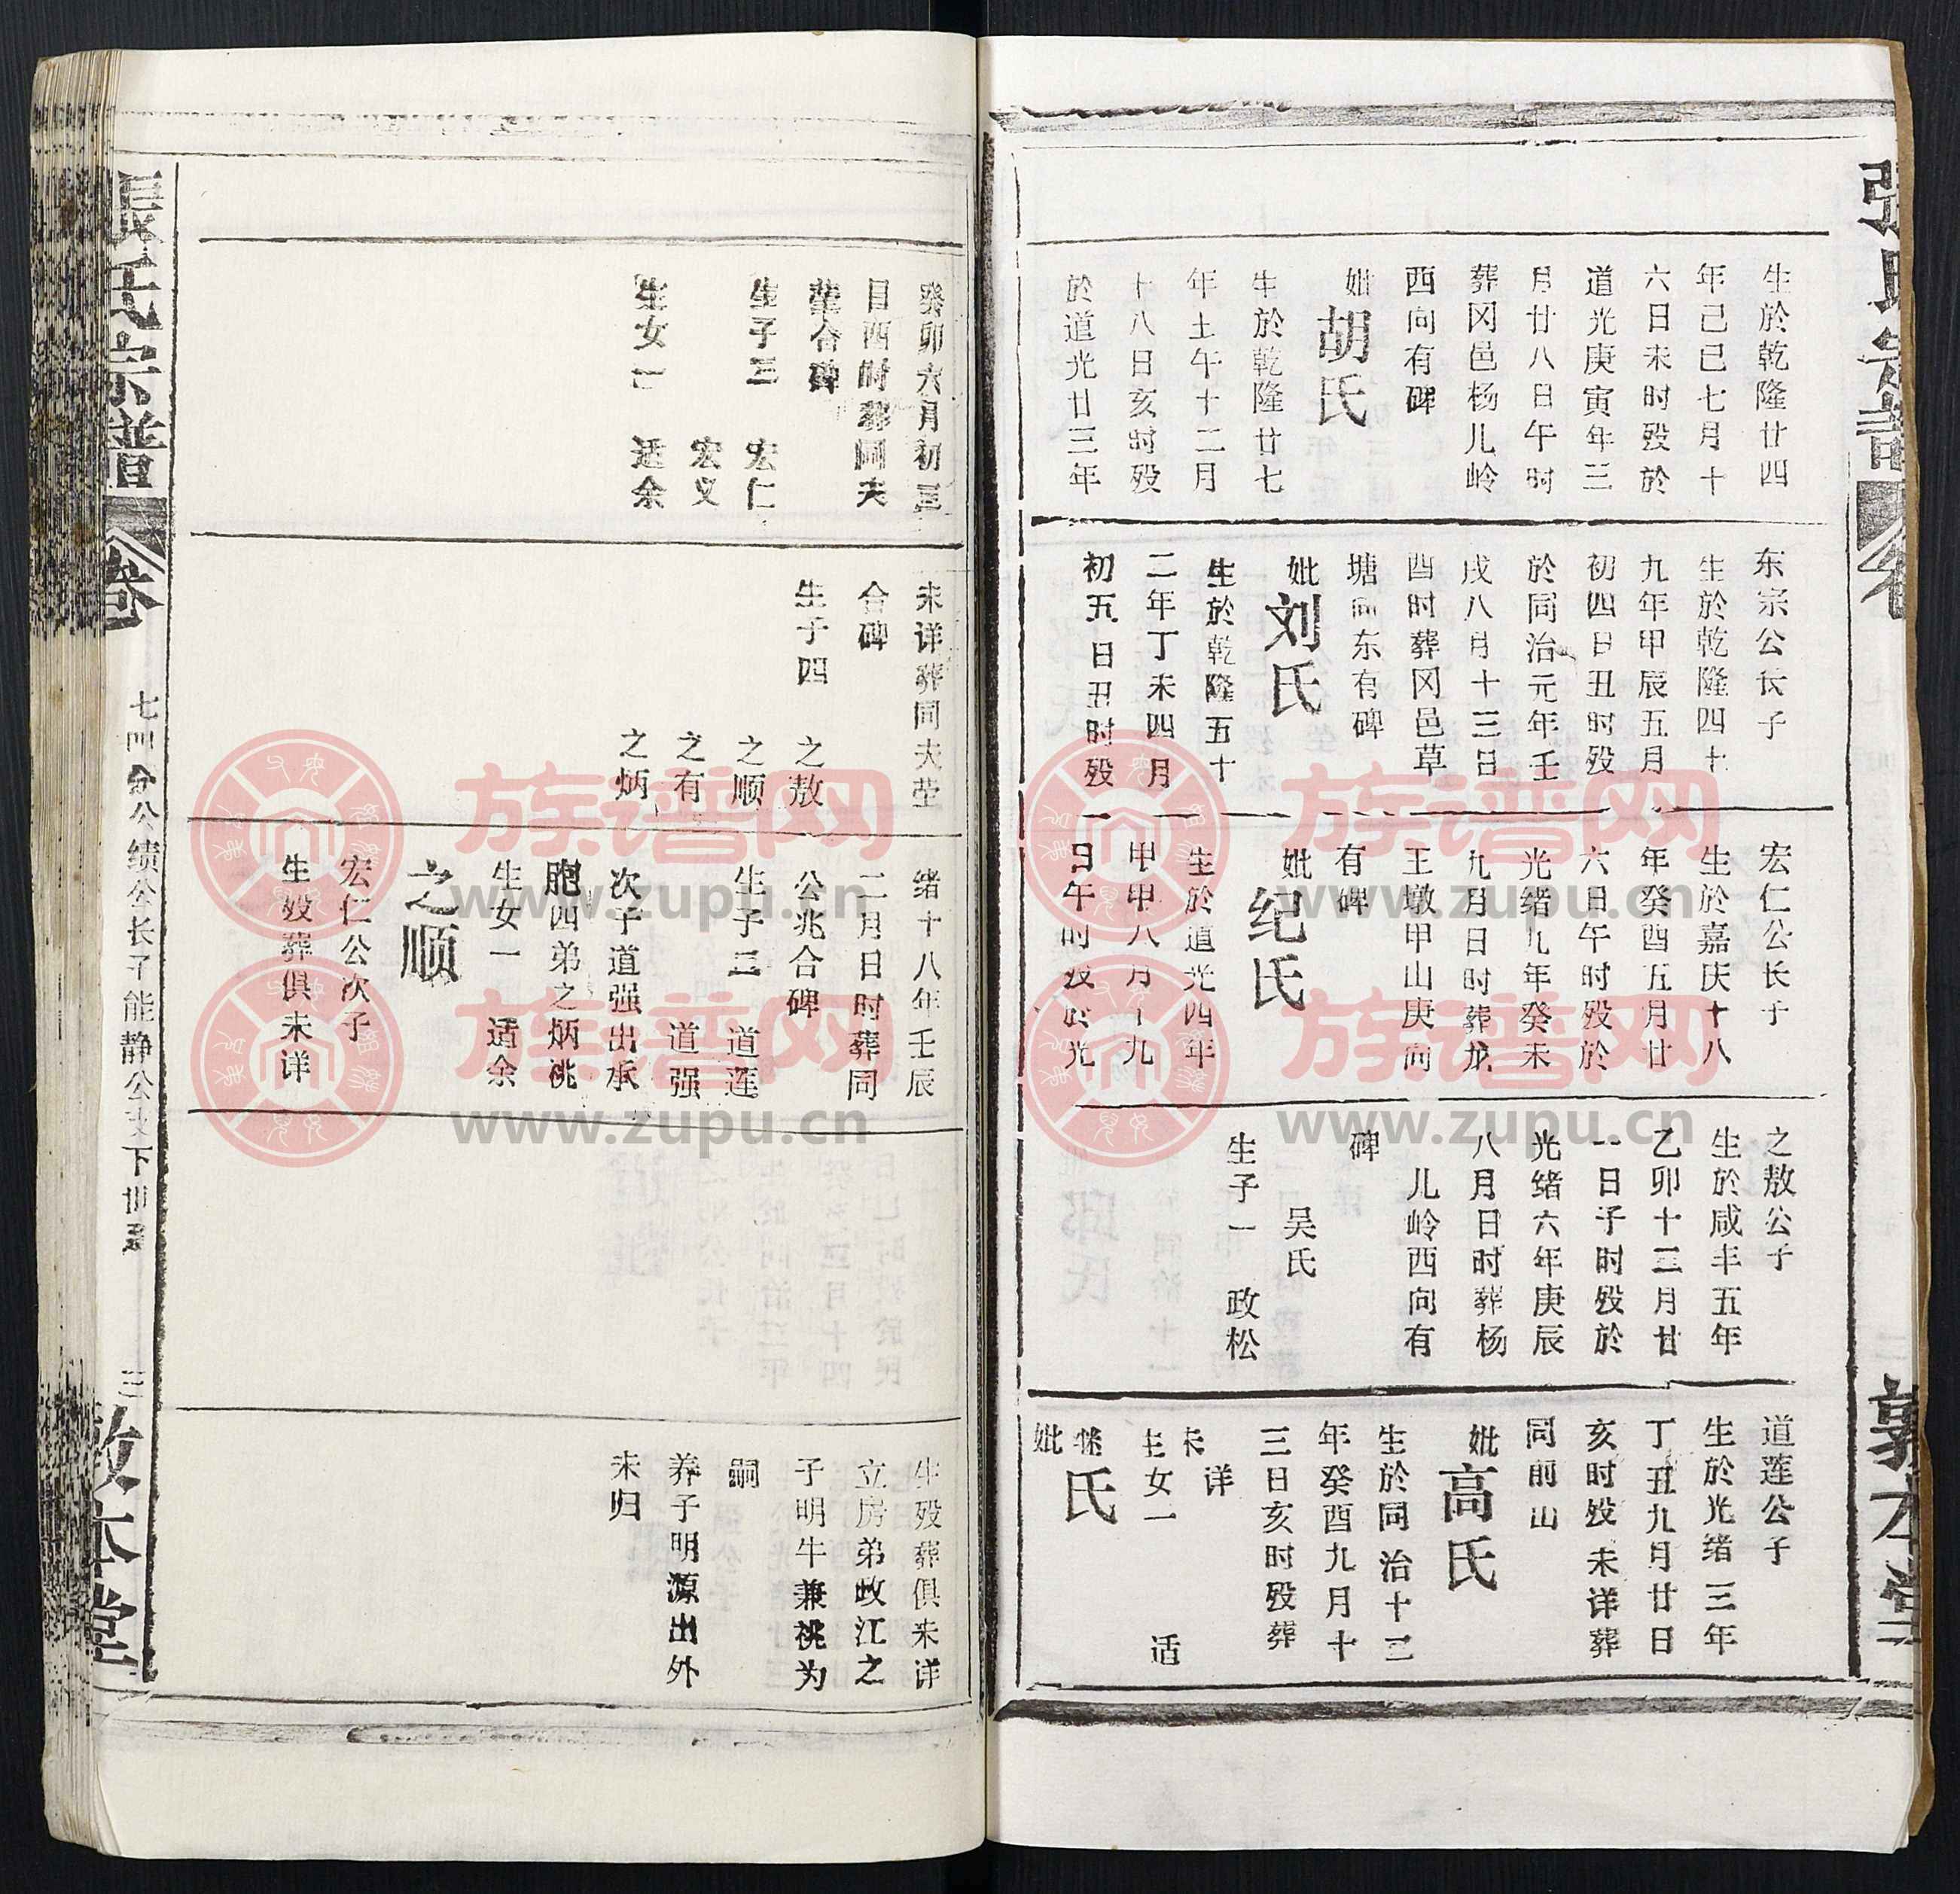 生於乾隆廿四
年己巳七月十
六日未时殁於
道光庚寅年三
月廿八日午时
葬冈邑杨儿岭
西向有碑
妣胡氏
生於乾隆廿七
年土午十二月
十八日亥时殁
於道光廿三年
东宗公长子
生於乾隆四十
九年甲辰五月
初四日丑时殁
於同治元年壬
戌八月十三日
酉时葬冈邑草
塘向东有碑
妣刘氏
生於乾隆五十
二年丁未四月
初五日丑时殁
宏仁公长子
生於嘉庆十八
年癸酉五月廿
六日午时殁於
光绪九年癸未
九月日时葬龙
王墩甲山庚向
有碑
妣纪氏
生於道光四年
甲申八月十九
日午时殁於光
之敖公子
生於咸丰五年
乙卯十二月廿
一日子时殁於
光绪六年庚辰
八月日时葬杨
儿岭西向有
碑
吴氏
生子一 政松
道莲公子
生於光绪三年
丁丑九月廿日
亥时殁未详葬
同前山
妣高氏
生於同治十二
年癸酉九月十
三日亥时殁葬
未详
生女一 适
妣 氏
张氏宗谱
敦本堂
癸卯六月初三
日酉时葬同夫
茔合碑
生子二 宏仁
宏义
生女一 适余
未详葬同夫茔
合碑
生子四 之敖
之顺
之有
之炳
绪十八年壬辰
二月日时葬同
公兆合碑
生子二 道莲
道强
次子道强出承
胞四弟之炳祧
生女一 适余
之顺
宏仁公次子
生殁葬俱未详
生殁葬俱未详
立房弟政江之
子明牛兼祧为
嗣
养子明源出外
未归
張氏宗谱
卷
七四分公绩公长子能静公支下世系
三
敦本堂
族谱网
www.zupu.cn
族谱网
www.zupu.cn
族谱网
www.zupu.cn
族谱网
www.zupu.cn